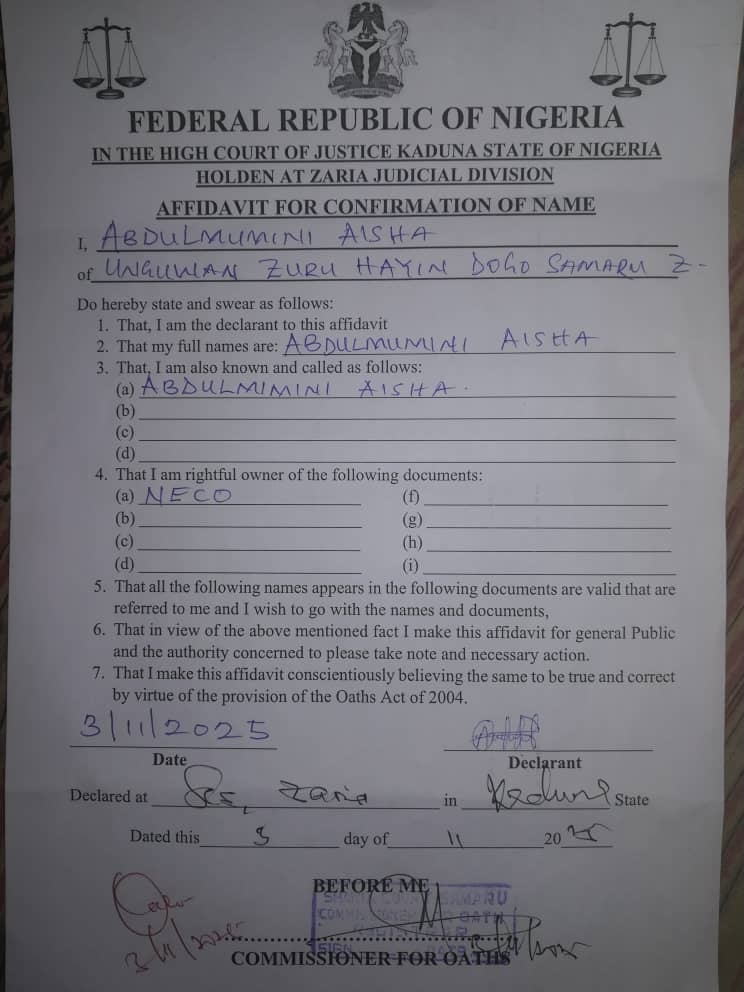 FEDERAL REPUBLIC OF NIGERIA
IN THE HIGH COURT OF JUSTICE KADUNA STATE OF NIGERIA
HOLDEN AT ZARIA JUDICIAL DIVISION
AFFIDAVIT FOR CONFIRMATION OF NAME
I, ABDULMUMINI AISHA
of UNGUWAN ZURU HAYIN DOGO SAMARU Z-
Do hereby state and swear as follows:
1. That, I am the declarant to this affidavit
2. That my full names are: ABDULMUMINI AISHA
3. That, I am also known and called as follows:
(a) ABDULMIMINI AISHA.
(b)
(c)
(d)
4. That I am rightful owner of the following documents:
(a) NECO (f)
(b) (g)
(c) (h)
(d) (i)
5. That all the following names appears in the following documents are valid that are
referred to me and I wish to go with the names and documents,
6. That in view of the above mentioned fact I make this affidavit for general Public
and the authority concerned to please take note and necessary action.
7. That I make this affidavit conscientiously believing the same to be true and correct
by virtue of the provision of the Oaths Act of 2004.
3/11/2025
Date Declarant
Declared at Zaria in Kaduna State
Dated this 3 day of 11 2025
BEFORE ME
SAMARU
OATH
SIGN
3/11/2025
COMMISSIONER FOR OATHS